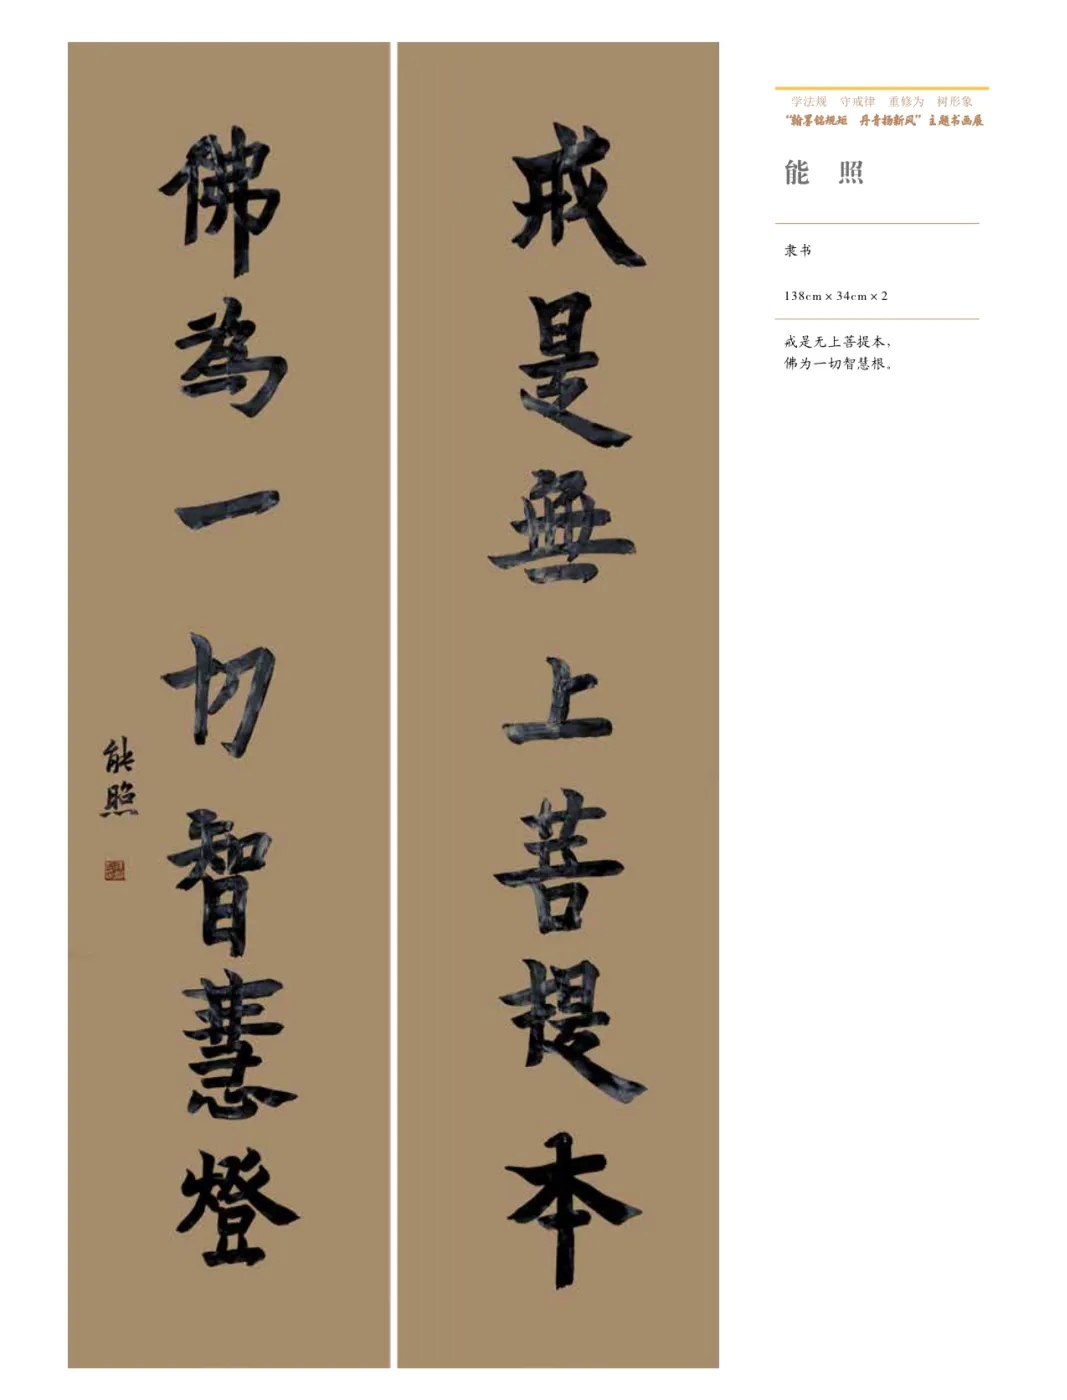 戒是無上菩提本
佛為一切智慧燈
能照
学法规 守戒律 重修为 树形象
“翰墨铭规矩 丹青扬新风”主题书画展
能 照
隶书
138cm×34cm×2
戒是无上菩提本，
佛为一切智慧根。